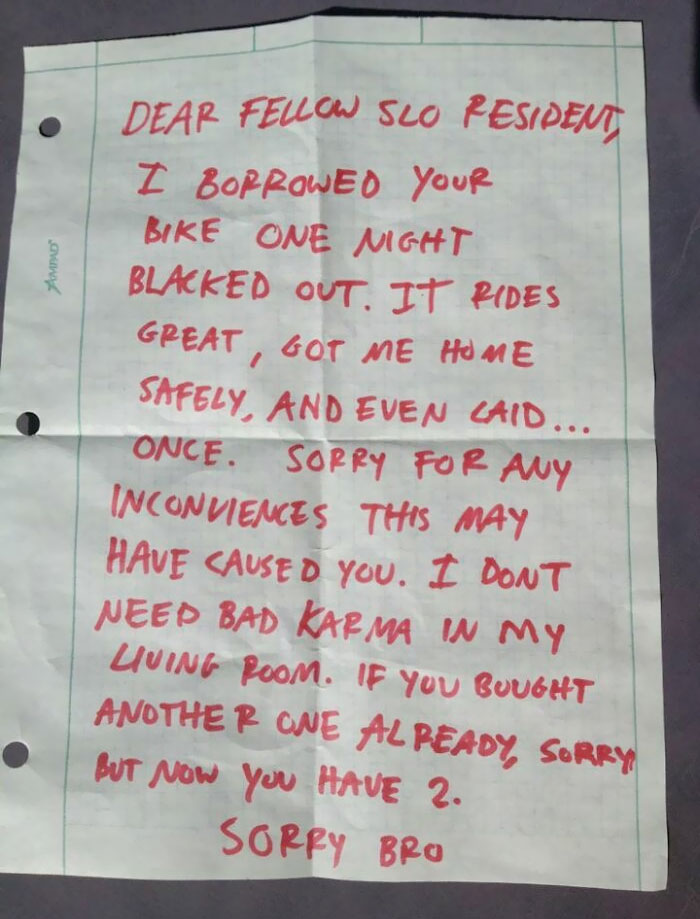 DEAR FELLOW SLO RESIDENT,
I BORROWED YOUR
BIKE ONE NIGHT
BLACKED OUT. IT RIDES
GREAT, GOT ME HOME
SAFELY, AND EVEN LAID...
ONCE. SORRY FOR ANY
INCONVIENCES THIS MAY
HAVE CAUSED YOU. I DONT
NEED BAD KARMA IN MY
LIVING ROOM. IF YOU BOUGHT
ANOTHER ONE ALREADY, SORRY
BUT NOW YOU HAVE 2.
SORRY BRO
AMPAD